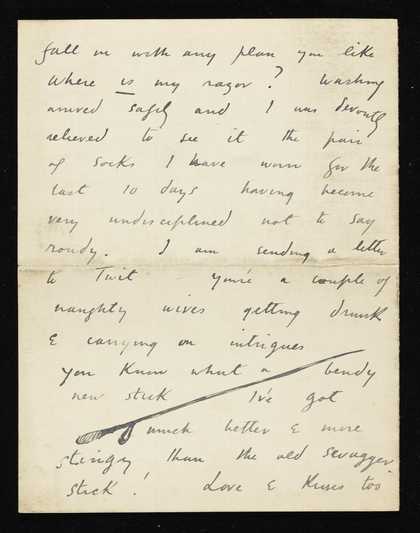 fall in with any plan you like
Where is my razor? Washing
arrived safely and I was devoutly
relieved to see it the pair
of socks I have worn for the
last 10 days having become
very undisciplined not to say
rowdy. I am sending a letter
to Twit – you're a couple of
naughty wives getting drunk
& carrying on intrigues
you know what a bendy
new stick I've got
much better & more
stingy than the old swagger
stick! Love & Kisses too